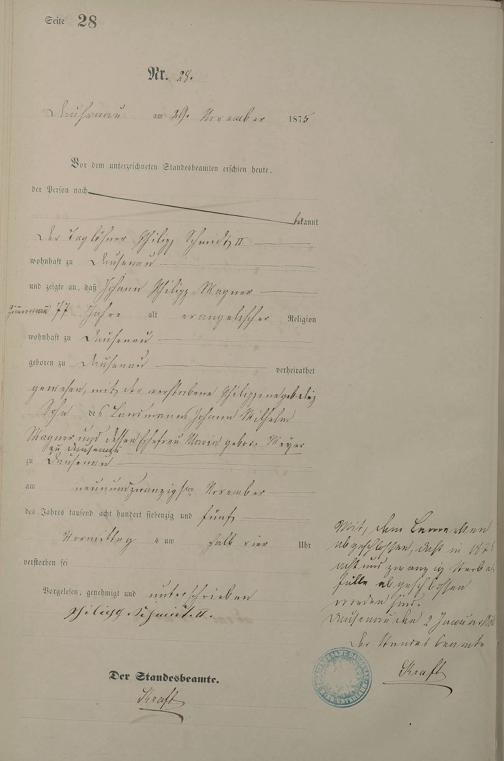 Seite 28
Nr. 28.
Dausenau am 29. November 1875
Vor dem unterzeichneten Standesbeamten erschien heute,
der Person nach
bekannt
Der Taglöhner Philipp Schmidt II
wohnhaft zu Dausenau
und zeigte an, daß Johann Philipp Wagner
77 Jahre alt evangelischer Religion
wohnhaft zu Dausenau
geboren zu Dausenau verheirathet
gewesen, mit der verstorbene Philippine geb.
Sohn des Landmanns Johann Wilhelm
Wagner und dessen Ehefrau Maria gebor. Meyer
zu Dausenau
zu Dausenau
am neunundzwanzigsten November
des Jahres tausend acht hundert siebenzig und fünf
Vormittag um halb vier Uhr
verstorben sei
Vorgelesen, genehmigt und unterschrieben
Philipp Schmidt II.
Der Standesbeamte.
Kraft
Mit dem Bemerken
abgeschlossen, daß in 1875
acht und zwanzig Sterbe
fälle abgeschlossen
worden sind.
Dausenau den 2 Januar
Der Standesbeamte
Kraft